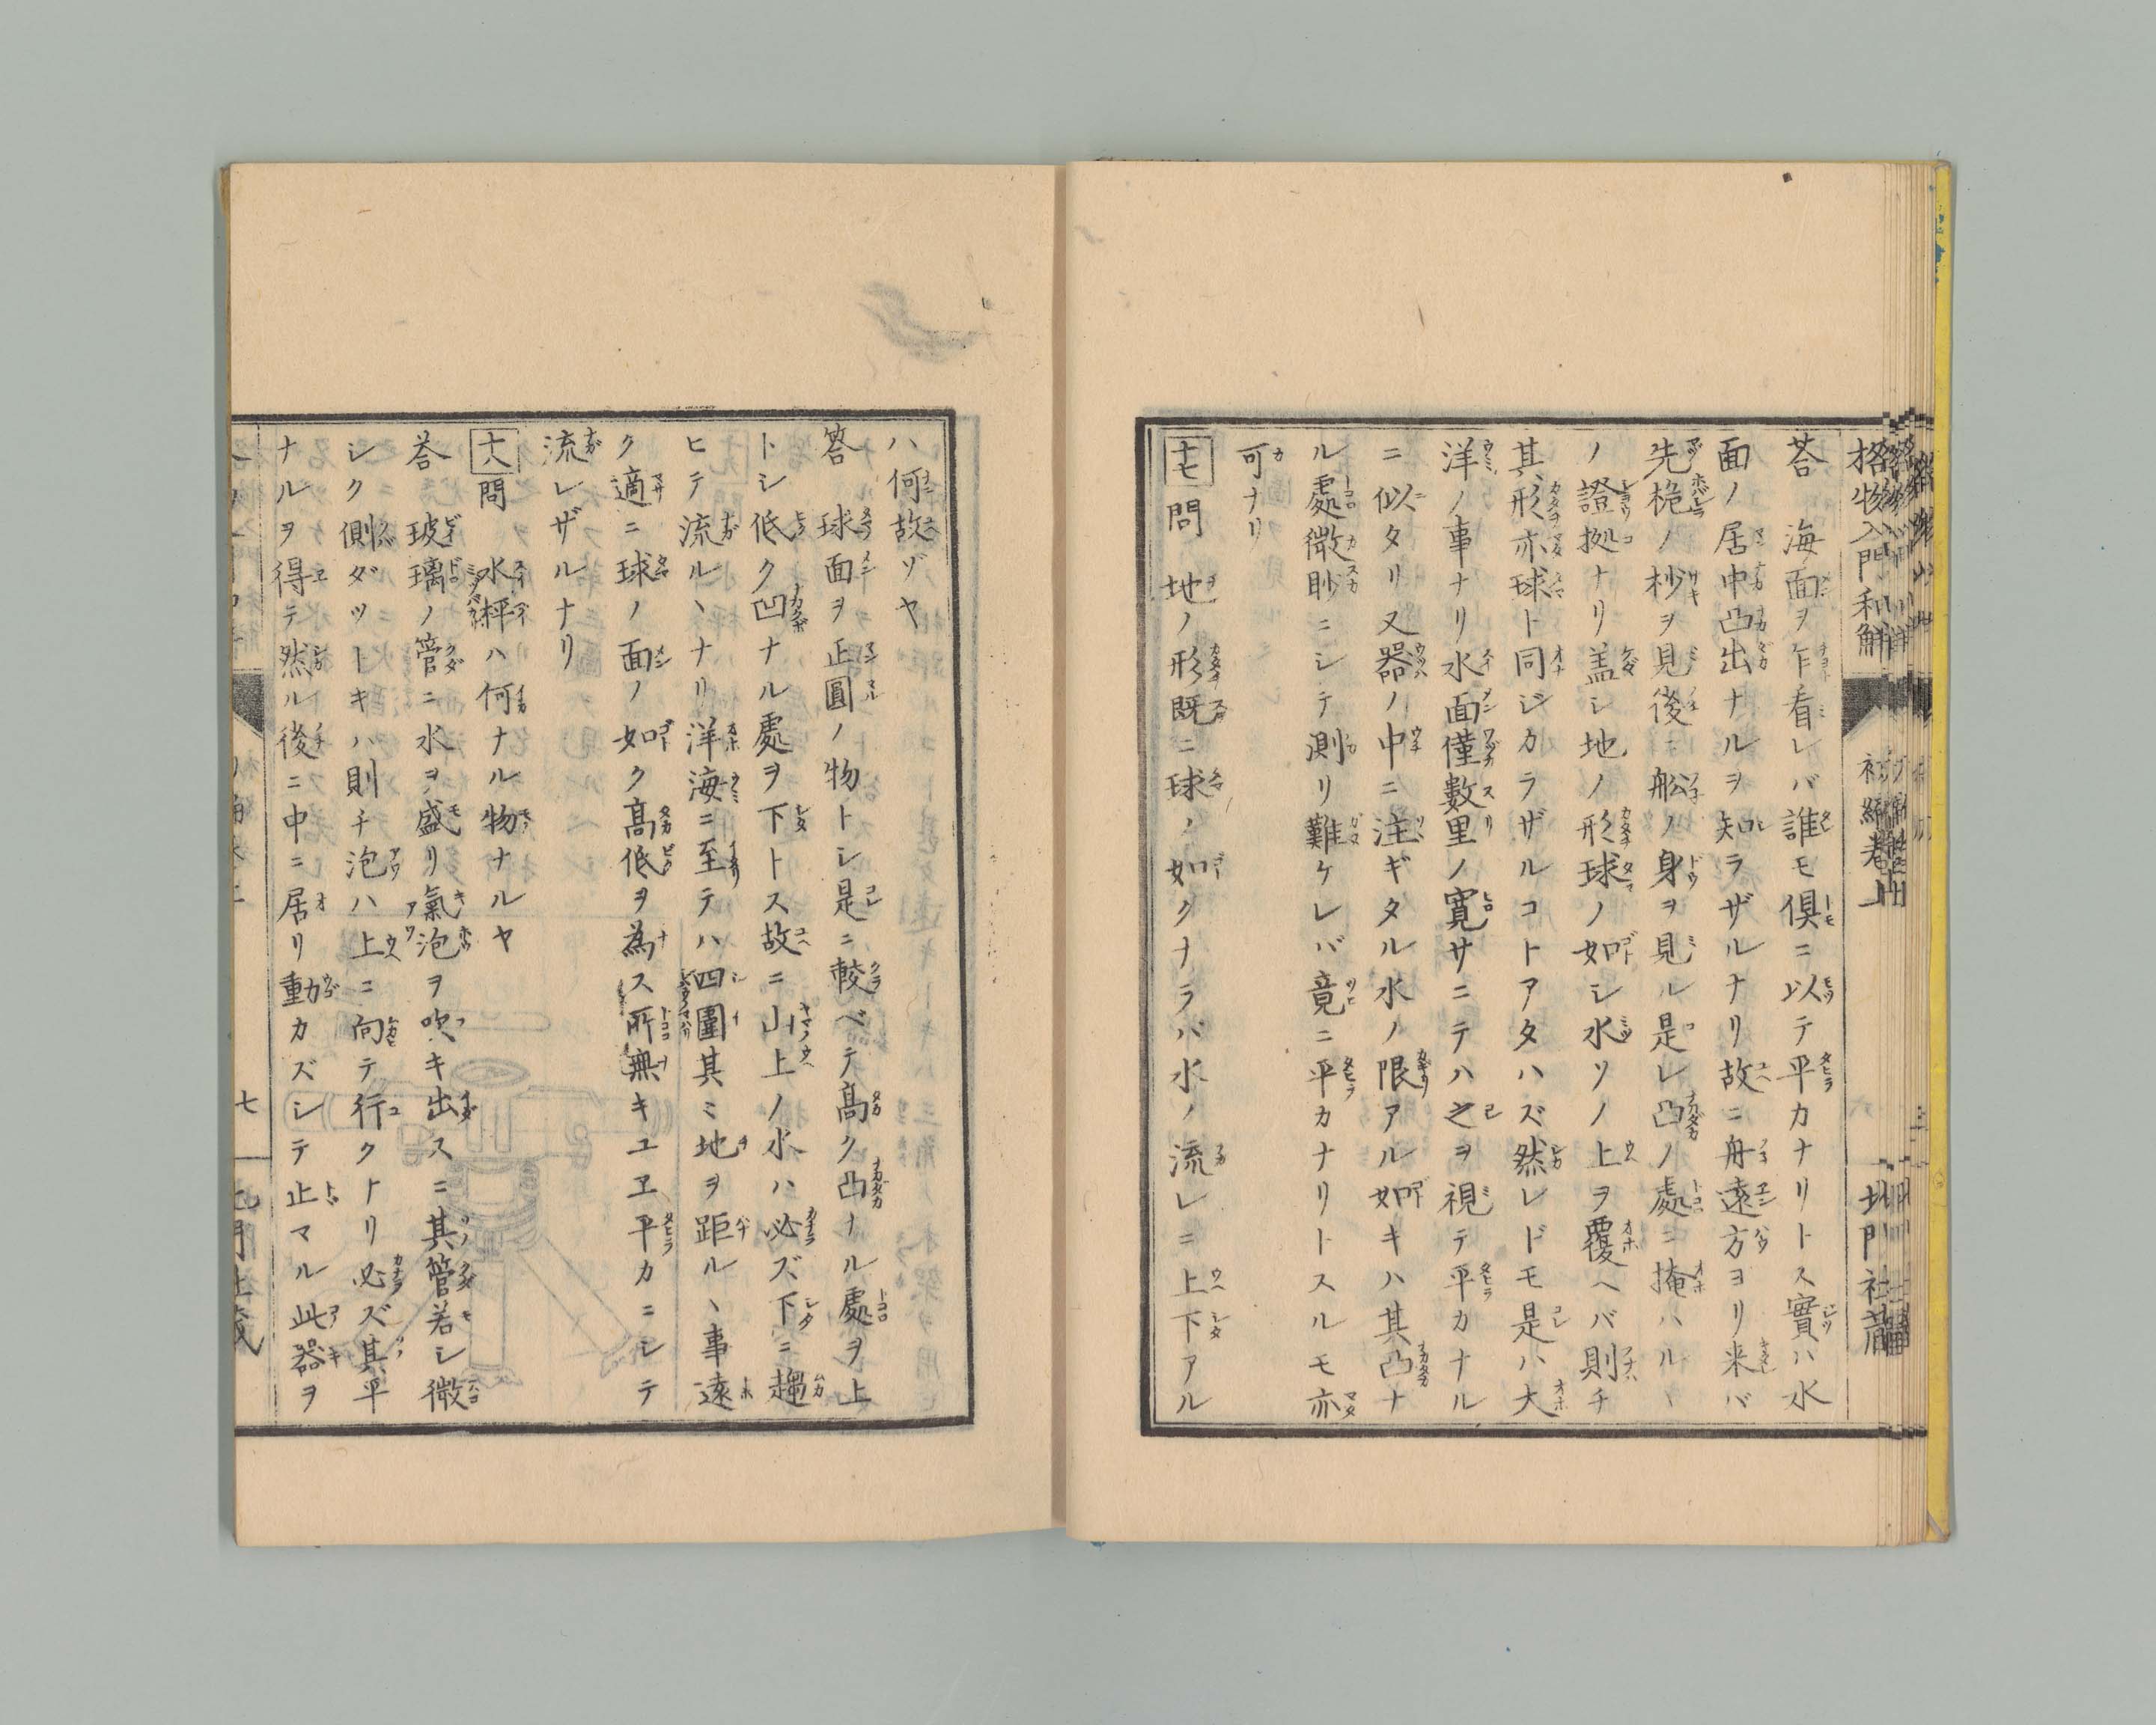 格物入門和解 初編卷上 北門社蔵
荅 海面ヲ乍看レバ誰モ倶ニ以テ平カナリトス實ハ水
面ノ居中凸出ナルヲ知ラザルナリ故ニ舟遠方ヨリ来バ
先桅ノ杪ヲ見後ニ船ノ身ヲ見ル是レ凸ノ處ニ掩ハルヽ
ノ證拠ナリ盖シ地ノ形球ノ如シ水ソノ上ヲ覆ヘバ則チ
其形亦球ト同ジカラザルコトアタハズ然レドモ是ハ大
洋ノ事ナリ水面僅數里ノ寛サニテハ之ヲ視テ平カナル
ニ似タリ又器ノ中ニ注ギタル水ノ限アル如キハ其凸ナ
ル處微眇ニシテ測リ難ケレバ竟ニ平カナリトスルモ亦
可ナリ
十七 問 地ノ形既ニ球ノ如クナラバ水ノ流レニ上下アル
ハ何故ゾヤ
答 球面ヲ正圓ノ物トシ是ニ較ベテ髙ク凸ナル處ヲ上
トシ低ク凹ナル處ヲ下トス故ニ山上ノ水ハ必ズ下ニ趨
ヒテ流ルヽナリ洋海ニ至テハ四圍其ミ地ヲ距ルヽ事遠
ク適ニ球ノ面ノ如ク髙低ヲ為ス所無キユヱ平カニシテ
流レザルナリ
十八 問 水枰ハ何ナル物ナルヤ
荅 玻璃ノ管ニ水ヲ盛リ氣泡ヲ吹キ出スニ其管若シ微
シク側ダットキハ則チ泡ハ上ニ向テ行クナリ必ズ其平
ナルヲ得テ然ル後ニ中ニ居リ動カズシテ止マル此器ヲ
七